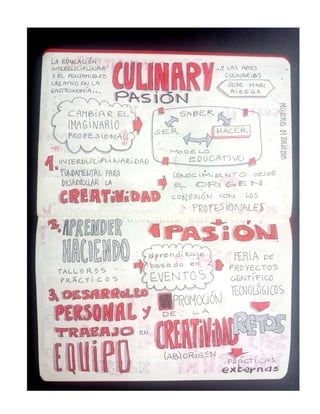 LA EDUCACIÓN
INTERDISCIPLINAR
Y EL PENSAMIENTO
CREATIVO EN LA
GASTRONOMÍA...
CULINARY
PASIÓN
...Y LAS ARTES
CULINARIAS
JOSE MARI
AIZEGA
CAMBIAR EL
IMAGINARIO
PROFESIONAL
SABER
SER
HACER
MODELO
EDUCATIVO
1. INTERDISCIPLINARIDAD
FUNDAMENTAL PARA
DESARROLLAR LA
CREATIVIDAD
CONOCIMIENTO DESDE
EL ORIGEN
CONEXIÓN CON LOS
PROFESIONALES
2. APRENDER
HACIENDO
TALLERES
PRÁCTICOS
PASIÓN
aprendizaje
basado en
EVENTOS
FERIA DE
PROYECTOS
CIENTÍFICO
TECNOLÓGICOS
3. DESARROLLO
PERSONAL Y
TRABAJO EN
EQUIPO
PROMOCIÓN
DE LA
CREATIVIDAD
(AB)ORIGEN
RETOS
PRÁCTICAS
externas